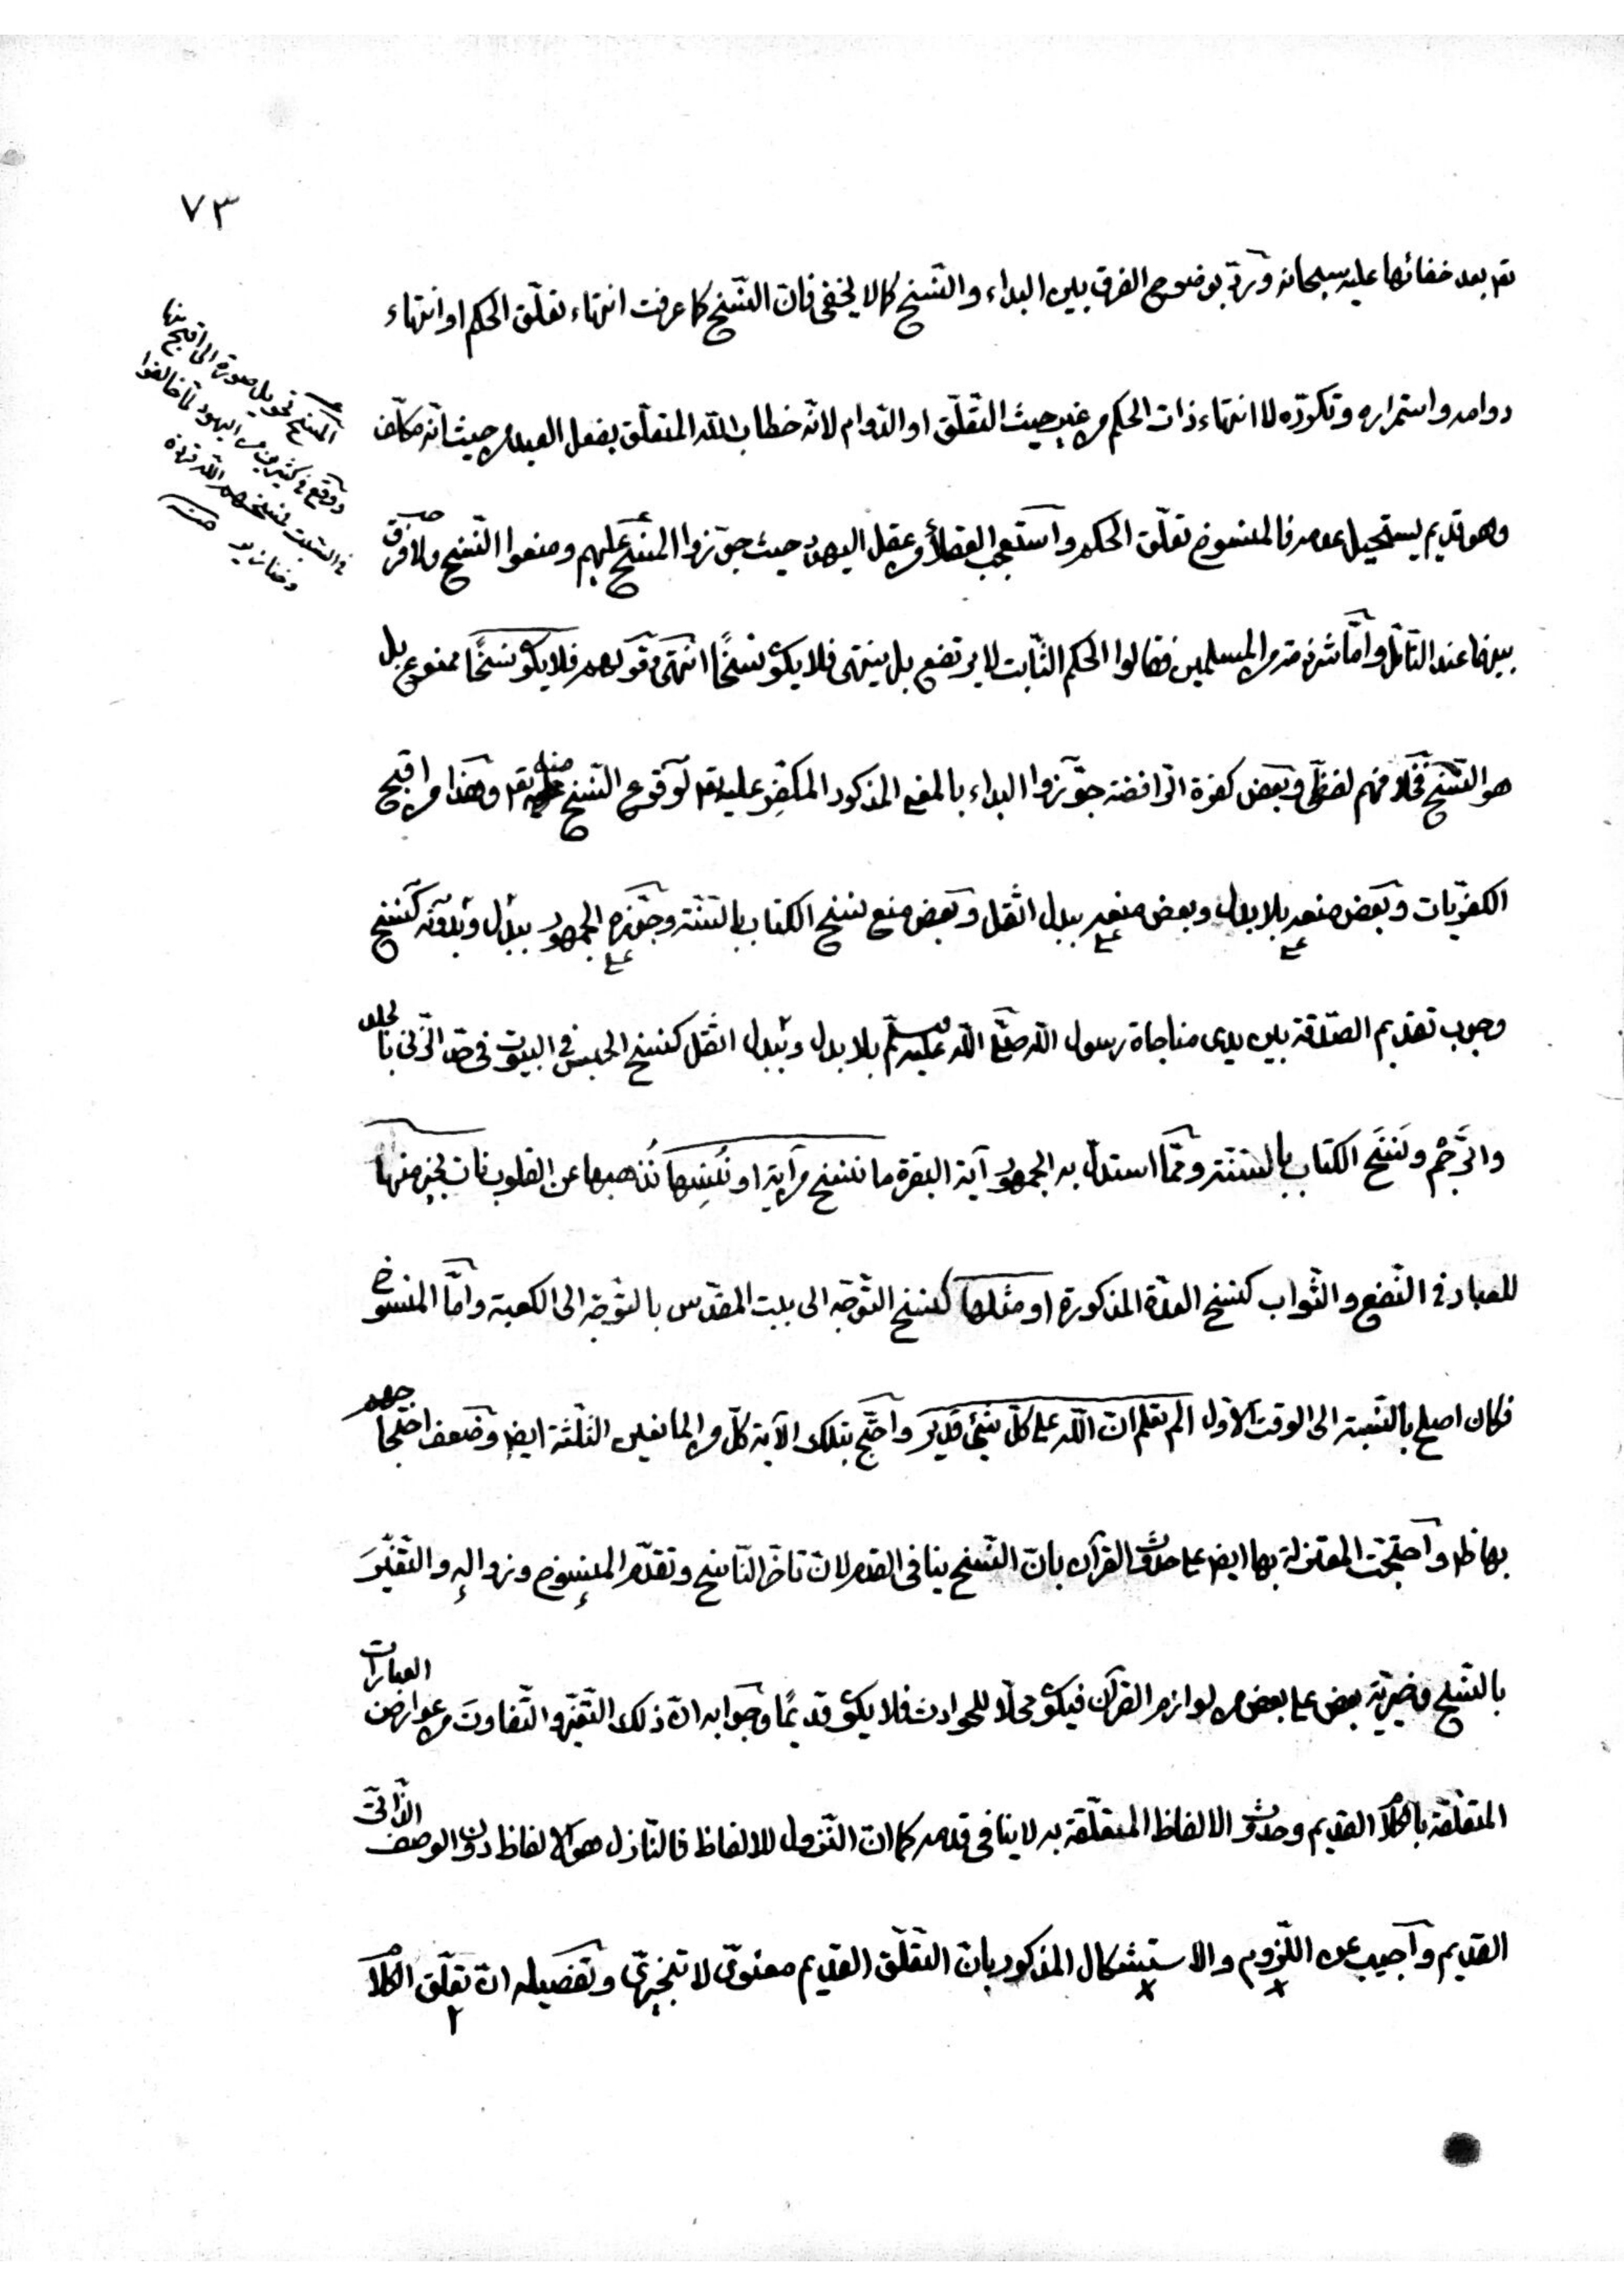 ٧٣
تع بعد خفائها عليه سبحانه وترد بوضوح الفرق بين البداء والنّسخ كما لا يخفى فانّ النّسخ كما عرفت انتهاء تعلّق الحكم او انتهاء
دوامه واستمراره وتكرّره لا انتهاء ذات الحكم من غير حيث التّعلّق او الدّوام لانّه خطاب اللّه المتعلّق بفعل العبد من حيث انّه مكلّف
وهو قديم يستحيل عدمه فالمنسوخ تعلّق الحكم واستعجب العقلاء من عقل اليهود حيث جوّزوا المسخ عليهم ومنعوا النّسخ ولا فرق
بينهما عند التّأمّل وامّا شرذمة من المسلمين فقالوا الحكم الثّابت لا يرتفع بل ينتهى فلا يكون نسخًا انتهى وقولهم فلا يكون نسخًا ممنوع بل
هو النّسخ فخلافهم لفظىّ وبعض كفرة الرّافضة جوّزوا البداء بالمعنى المذكور المكفّر عليه تع لوقوع النّسخ منه تع وهذا من اقبح
الكفريّات وبعض منعه بلا بدل وبعض منعه ببدل اثقل وبعض منع نسخ الكتاب بالسّنّة وجوّزه الجمهور ببدل وبدونه كنسخ
وجوب تقديم الصّدقة بين يدى مناجاة رسول اللّه صلّى اللّه عليه وسلّم بلا بدل وببدل اثقل كنسخ الحبس فى البيوت فى حدّ الزّنى بالجلد
والرّجم ونسخ الكتاب بالسّنّة وممّا استدلّ به الجمهور آية البقرة ما ننسخ من آية او نُنسِها نُذهبها عن القلوب نأت بخير منها
للعباد فى النّفع والثّواب كنسخ العدّة المذكورة او مثلها كنسخ التّوجّه الى بيت المقدّس بالتّوجّه الى الكعبة وامّا المنسوخ
فكان اصلح بالنّسبة الى الوقت الاوّل الم تعلم انّ اللّه على كلّ شئ قدير واحتجّ بتلك الآية كلّ من المانعين الثّلثة ايض وضعف احتجاجهم
بها ظ واحتجّت المعتزلة بها ايض على حدوث القرآن بانّ النّسخ ينافى القدم لانّ تأخّر النّاسخ وتقدّم المنسوخ وزواله والتّغيّر
بالنّسخ وخيريّة بعض على بعض من لوازم القرآن فيكون محلّا للحوادث فلا يكون قديمًا وجوابه انّ ذلك التّغيّر والتّفاوت من عوارض العبارات
المتعلّقة بالكلام القديم وحدوث الالفاظ المتعلّقة به لا ينافى قدمه كما انّ النّزول للالفاظ فالنّازل هو الالفاظ دون الوصف الذّاتىّ
القديم واجيب عن اللّزوم والاستشكال المذكور بانّ التّعلّق القديم معنوىّ لا تنجيزىّ وتفصيله انّ تعلّق الكلام
المسخ تحويل صورة الى اقبح منها
ووقع فى كثير من اليهود لمّا خالفوا
فى السّبت فمسخهم اللّه قردة
وخنازير منه